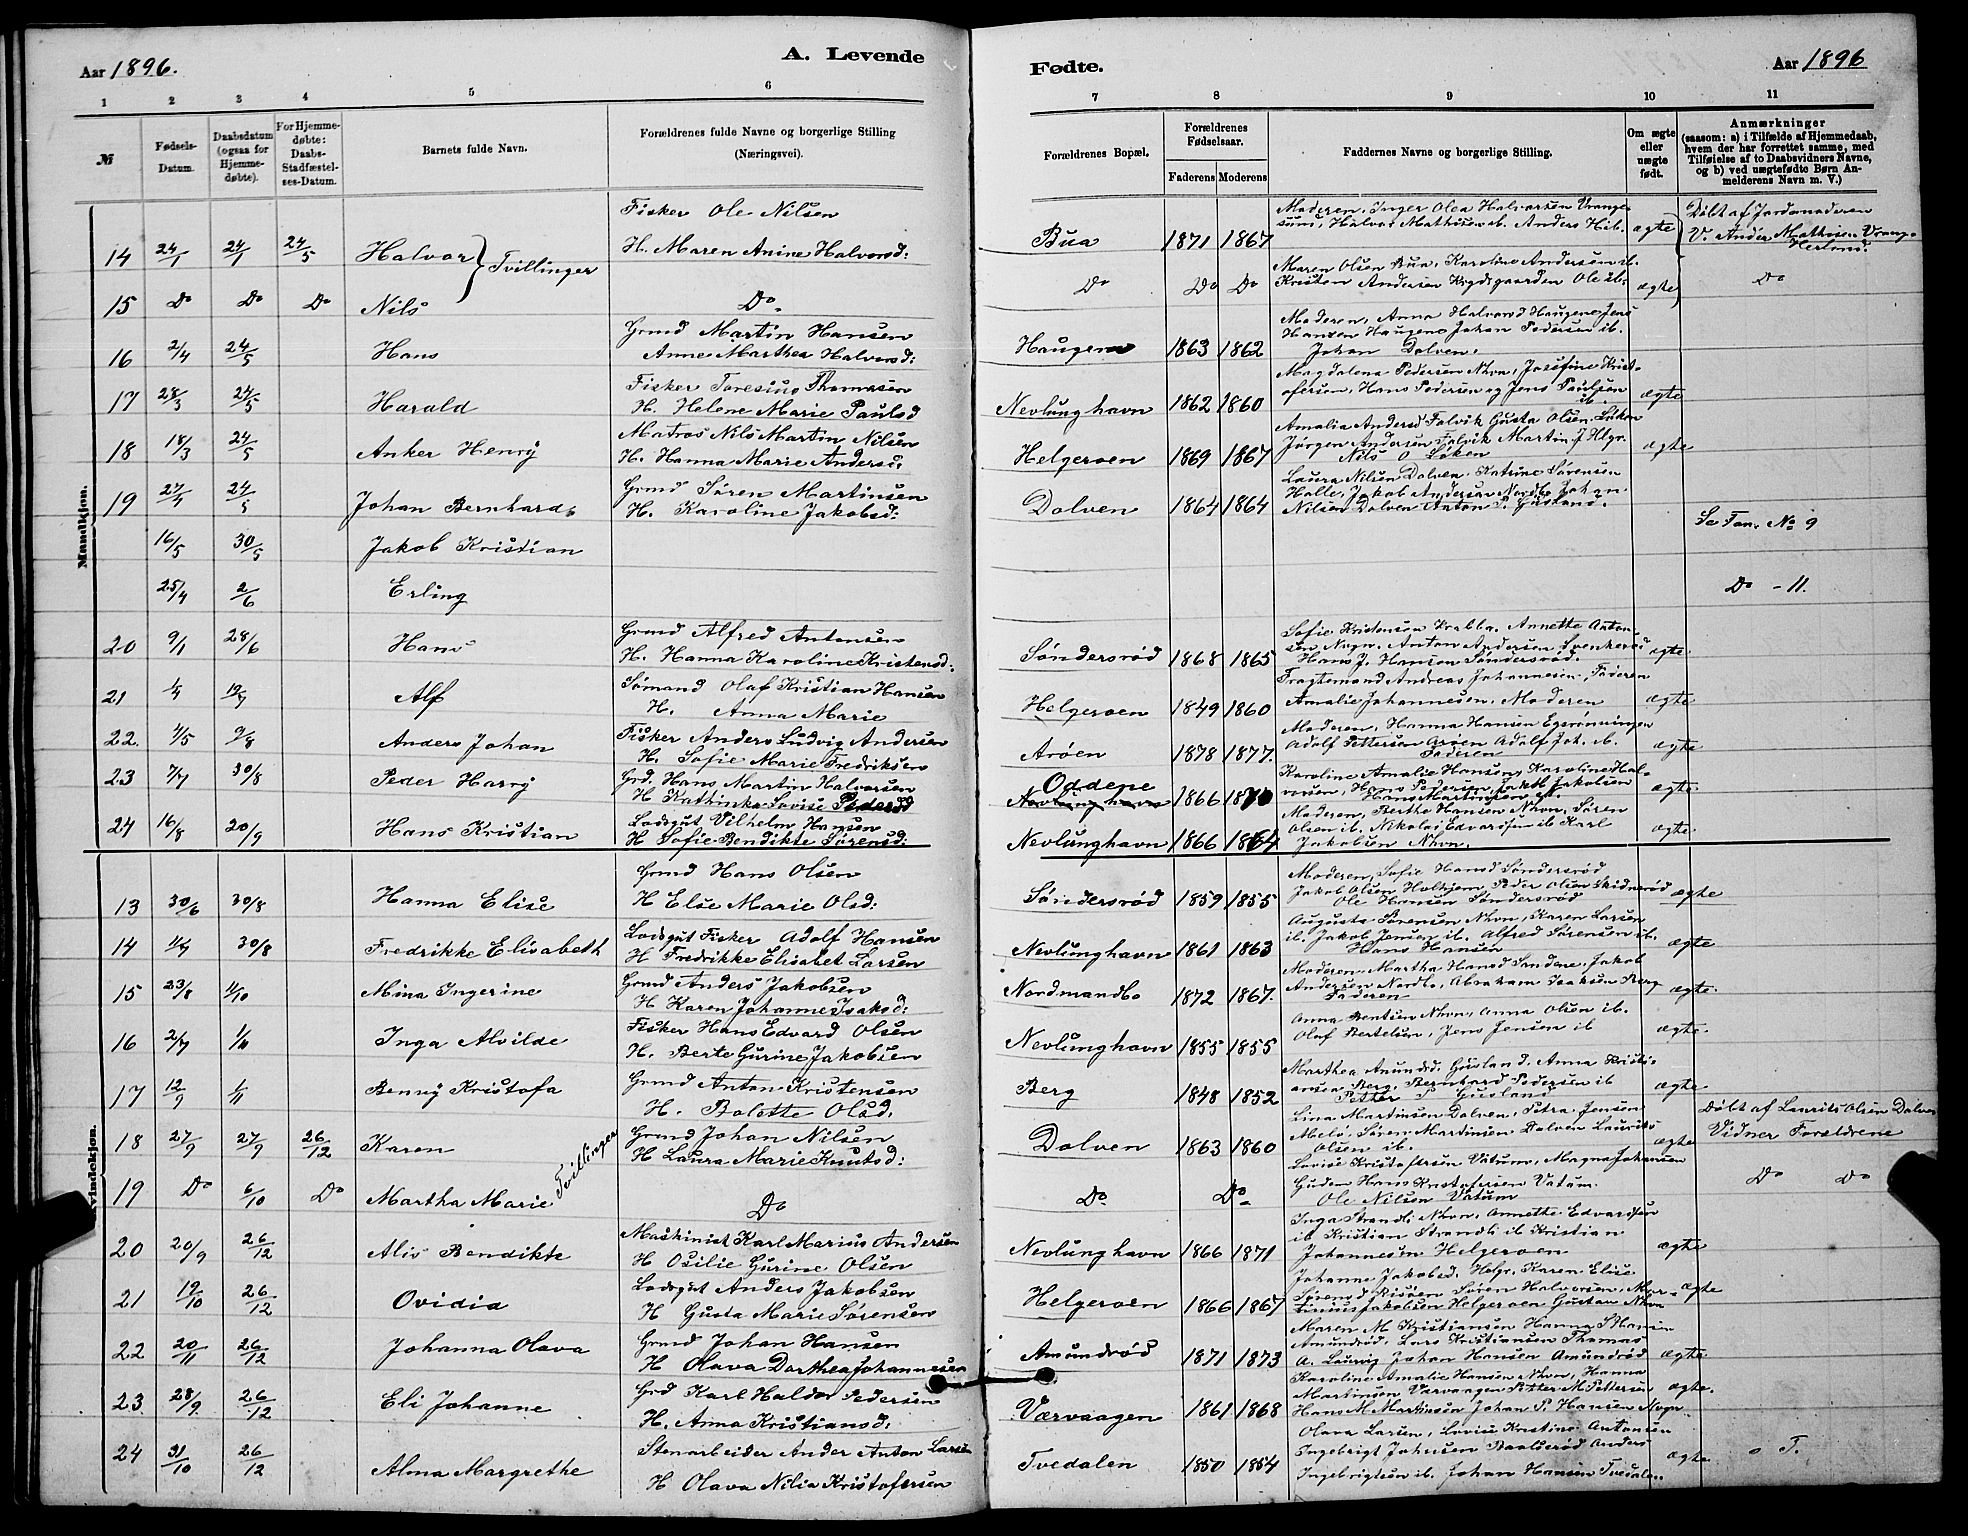 Aar 1896.
A. Levende
Fødte.
Aar 1896
1 2 3 4 5 6 7 8 9 10 11
№
Fødsels-Datum.
Daabsdatum (ogsaa for Hjemme-døbte).
For Hjemme-døbte: Daabs-Stadfæstel-ses-Datum.
Barnets fulde Navn.
Forældrenes fulde Navne og borgerlige Stilling (Næringsvei).
Forældrenes Bopæl.
Forældrenes Fødselsaar.
Faderens Moderens
Faddernes Navne og borgerlige Stilling.
Om ægte eller uægte født.
Anmærkninger
(saasom: a) i Tilfælde af Hjemmedaab, hvem der har forrettet samme, med Tilføielse af to Daabsvidners Navne, og b) ved uægtefødte Børn An-melderens Navn m. V.)
Mandkjøn.
Fisker Ole Nilsen
14 24/1 24/1 24/5 Halvor } Tvillinger H. Maren Anine Halvorsd: Bua 1871 1867 ægte
Moderen, Inger Olea Halvorsen
Døbt af Jordemoderen
15 Do Do Do Nils Do Do Do Do ægte Do
Maren Olsen Bua, Karoline Andersen ib.
16 2/4 24/5 Hans Grmd Martin Hansen
Anne Marthea Halvorsd: Haugene 1863 1862
Moderen, Anna Halvorsd Haugene Jens
Hansen Haugene Johan Pedersen ib.
Johan Dolven.
17 28/3 24/5 Harald Fisker Toresius Thomasen
H. Helene Marie Paulsd Nevlunghavn 1862 1860 ægte
Magdalena Pedersen Nhvn, Josefine Krist-
ofersen, Hans Pedersen og Jens Paulsen ib.
18 18/3 24/5 Anker Henry Matros Nils Martin Nilsen
H. Hanna Marie Andersd. Helgeroen 1869 1867 ægte
Amalia Andersd Falvik Gusta Olsen Løken
Jørgen Andersen Falvik Martin J Hlgr.
Nils O Løken
19 27/4 24/5 Johan Bernhard Grmd Søren Martinsen
H. Karoline Jakobsd: Dolven 1864 1864
Laura Nilsen Dolven, Katrine Sørensen
Holle, Jakob Andersen Nordbo Johan
Nilsen Dolven Anton P. Gusland.
16/5 30/5 Jakob Kristian Se Fan. No 9
25/4 2/6 Erling Do - 11.
20 9/1 28/6 Hans Grmd Alfred Antonsen
H. Hanna Karoline Kristensd: Søndersrød 1868 1865 ægte
Sofie Kristensen Krabba, Annette Anton-
sen Nvgn. Anton Andersen
Hans J. Hansen Søndersrød.
21 Alf Sømand Olaf Kristian Hansen
H. Anna Marie Helgeroen 1849 1860 ægte
Fragtemand Andreas Johannesen, Faderen
Amalie Johannesen, Moderen
22. 4/5 9/8 Anders Johan Fisker Anders Ludvig Andersen
H. Sofie Marie Fredriksen Arøen 1878 1877. ægte
Moderen, Hanna Hansen
Adolf Pettersen Arøen Adolf Joh. ib.
Faderen
23 7/7 30/8 Peder Harry Grd. Hans Martin Halvorsen
H Kathinka Lovise Pedersd Oddene Nevlunghavn 1866 ægte
Karoline Amalie Hansen, Karoline Hal-
vorsen, Hans Pedersen, Jakob Jakobsen
24 16/8 20/9 Hans Kristian Lodsgut Vilhelm Hansen
H Sofie Bendikte Sørensd: Nevlunghavn 1866 1864 ægte
Moderen, Berthe Hansen Nhvn, Søren
Olsen ib. Nikolai Edvardsen ib Karl
Jakobsen Nhvn.
Kvindekjøn.
13 30/6 30/8 Hanna Elise Grmd Hans Olsen
H Else Marie Olsd: Søndersrød 1859 1855 ægte
Moderen, Sofie Hansd Søndersrød
Jakob Olsen Halhjem Peder Olsen Skidnerød
Ole Hansen Søndersrød
14 30/8 Fredrikke Elisabeth Lodsgut Fisker Adolf Hansen
H Fredrikke Elisabet Larsen Nevlunghavn 1861 1863 ægte
Augusta Sørensen Nhvn, Karen Larsen
ib. Jakob Jensen ib. Alfred Sørensen ib.
Hans Hansen
15 23/8 4/10 Mina Ingerine Grmd Anders Jakobsen
H Karen Johanne Isaksd: Nordmandbo 1872 1867. ægte.
Moderen, Martha Hansd Søndene, Jakob
Andersen Nordbo, Abraham Isaksen Berg
Faderen
16 2/7 1/11 Inga Alvilde Fisker Hans Edvard Olsen
H. Berte Gurine Jakobsen Nevlunghavn 1855 1855 ægte.
Anna Bentsen Nhvn, Anna Olsen ib.
Olaf Bertelsen, Jens Jensen ib
17 12/9 1/11 Benny Kristofa Grmd Anton Kristensen
H. Bolette Olsd. Berg 1848 1852 ægte
Marthea Amundsd. Gusland, Anna Kristi-
ansen Berg. Bernhard Pedersen ib
Petter P Gusland
18 27/9 27/9 26/12 Karen Tvillinger Grmd Johan Nilsen
H Laura Marie Knutsd: Dolven 1863 1860 ægte
Lina Martinsen Dolven, Petra Jensen
Melø, Søren Martinsen Dolven Laurits
Olsen ib.
Døbt af Laurits Olsen Dolven
Vidner Forældrene
19 Do 6/10 Do Martha Marie Do Do Do Do Do
Lovise Kristofersen Vatum, Magna Johansen
Guden Hans Kristofersen Vatum.
Ole Nilsen Vatum
20 20/9 26/12 Alis Bendikte Maskinist Karl Marius Andersen
H Osilie Gurine Olsen Nevlunghavn 1866 1871 ægte
Inga Strandli Nhvn, Annette Edvardsen
ib Kristian Strandli ib Kristian
Johannesen Helgeroen
21 19/10 26/12 Ovidia Lodsgut Anders Jakobsen
H Gusta Marie Sørensen Helgeroen 1866 1867 ægte
Johanne Jakobsd. Helgr. Karen Elise
Sørensd Risøen Søren Halvorsen, Mar-
tinius Jakobsen Helgeroen Gustav Nhvn
22 20/11 26/12 Johanna Olava Grmd Johan Hansen
H Olava Dorthea Johannesen Amundrød 1871 1873 ægte
Maren M Kristiansen Hanna
Amundrød, Lars Kristiansen Thomas
A. Laurvig Johan Hansen Amundrød
23 28/9. 26/12 Eli Johanne Grd Karl Haldor Pedersen
H. Anna Kristiansd: Værvaagen 1861 1868 ægte.
Karoline Amalie Hansen Nhvn, Hanna
Martinsen Værvaagen Petter M Pettersen
Hans M Martinsen Johan P. Hansen Nvgn
24 31/10 26/12 Alma Margrethe Stenarbeider Ander Anton Larsen
H Olava Nilia Kristofersen Tvedalen 1850 1854 ægte
Olava Larsen, Lovise Kristine Antonsen
Ingebrigt Johnsen Anders
Ingebrigtsen ib. Johan Hansen Tvedalen